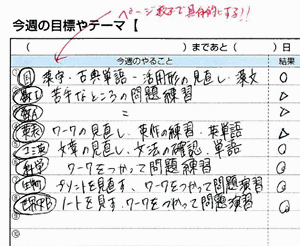 ページ数まで具体的にする!!
今週の目標やテーマ【
( )まであと( )日
今週のやること 結果
国 漢字・古典単語・活用形の見直し・漢文 ○
数I 苦手なところの問題練習 △
数A 〃 △
英表 ワークの見直し、英作の練習・英単語 △
コミ英 本文の見直し・文法の確認・単語 ○
科学 ワークをつかって問題練習 ◎
生物 プリントを見直す、ワークをつかって問題練習 ◎
世界史 ノートを見す、ワークをつかって問題練習 ◎